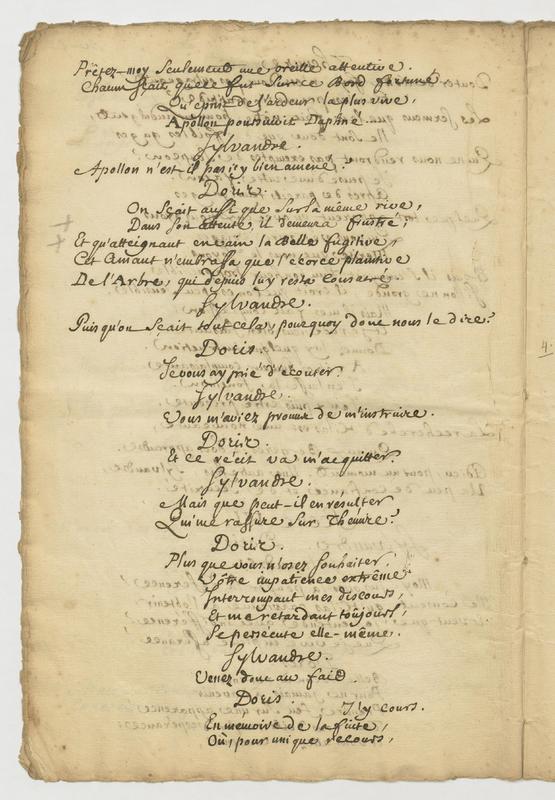 Prêtez-moy Seulement une oreille attentive.
Chacun sçait, que ce fut Sur ce Bord fortuné
Qu'épris de l'ardeur la plus vive,
Apollon poursuivit Daphné.
Sylvandre.
Apollon n'est-il pas icy bien amené.
Doris.
On Sçait aussi que Sur la même rive,
Dans Son attente il demeura frustré;
Et qu'atteignant en vain la Belle fugitive,
Cet Amant n'embrassa que l'écorce plaintive
De l'Arbre, qui depuis luy resta Consacré.
Sylvandre.
Puis qu'on Scait tout cela, pourquoy donc nous le dire?
Doris.
Je vous ay prié d'écouter.
Sylvandre.
Vous m'aviez promis de m'instruire.
Doris.
Et ce récit va m'acquitter
Sylvandre.
Mais que peut-il en résulter
Qui me rassure Sur Themire?
Doris.
Plus que vous n'osez Souhaiter.
Vôtre impatience extrême
Interrompant mes discours,
Et me retardant toûjours,
Se persécute elle-même.
Sylvandre.
Venez donc au fait.
Doris. J'y cours.
En mémoire de la fuite,
Où, pour unique recours,
4.